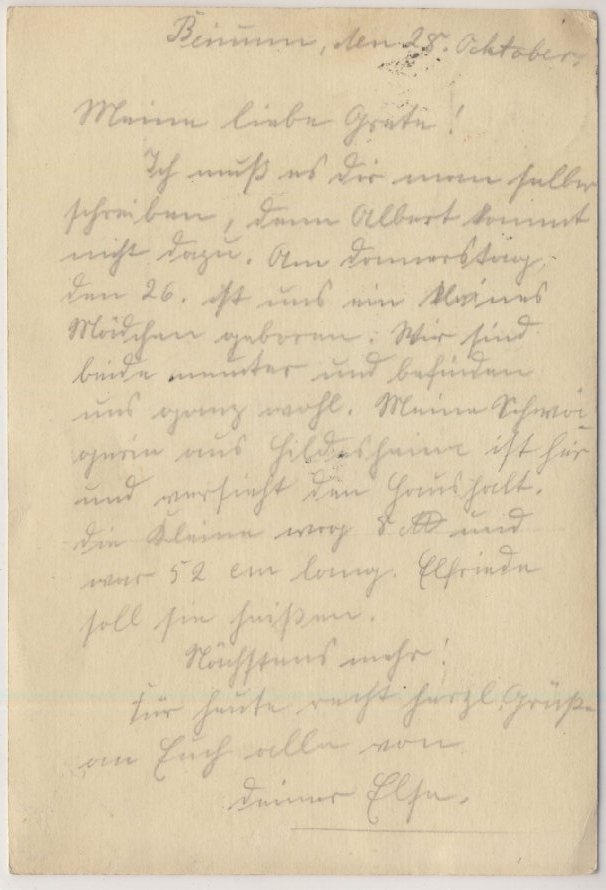 Beinum, den 28. Oktober.
Meine liebe Grete!
Ich muß es Dir man selber
schreiben, denn Albert kommt
nicht dazu. Am Donnerstag,
den 26. ist uns ein kleines
Mädchen geboren. Wir sind
beide munter und befinden
uns ganz wohl. Meine Schwä-
gerin aus Hildesheim ist hier
und versieht den Haushalt.
Die Kleine wog 8 ℔ und
war 52 cm lang. Elfriede
soll sie heißen.
Nächstens mehr!
Für heute recht herzl. Grüße
an Euch alle von
Deiner Else.